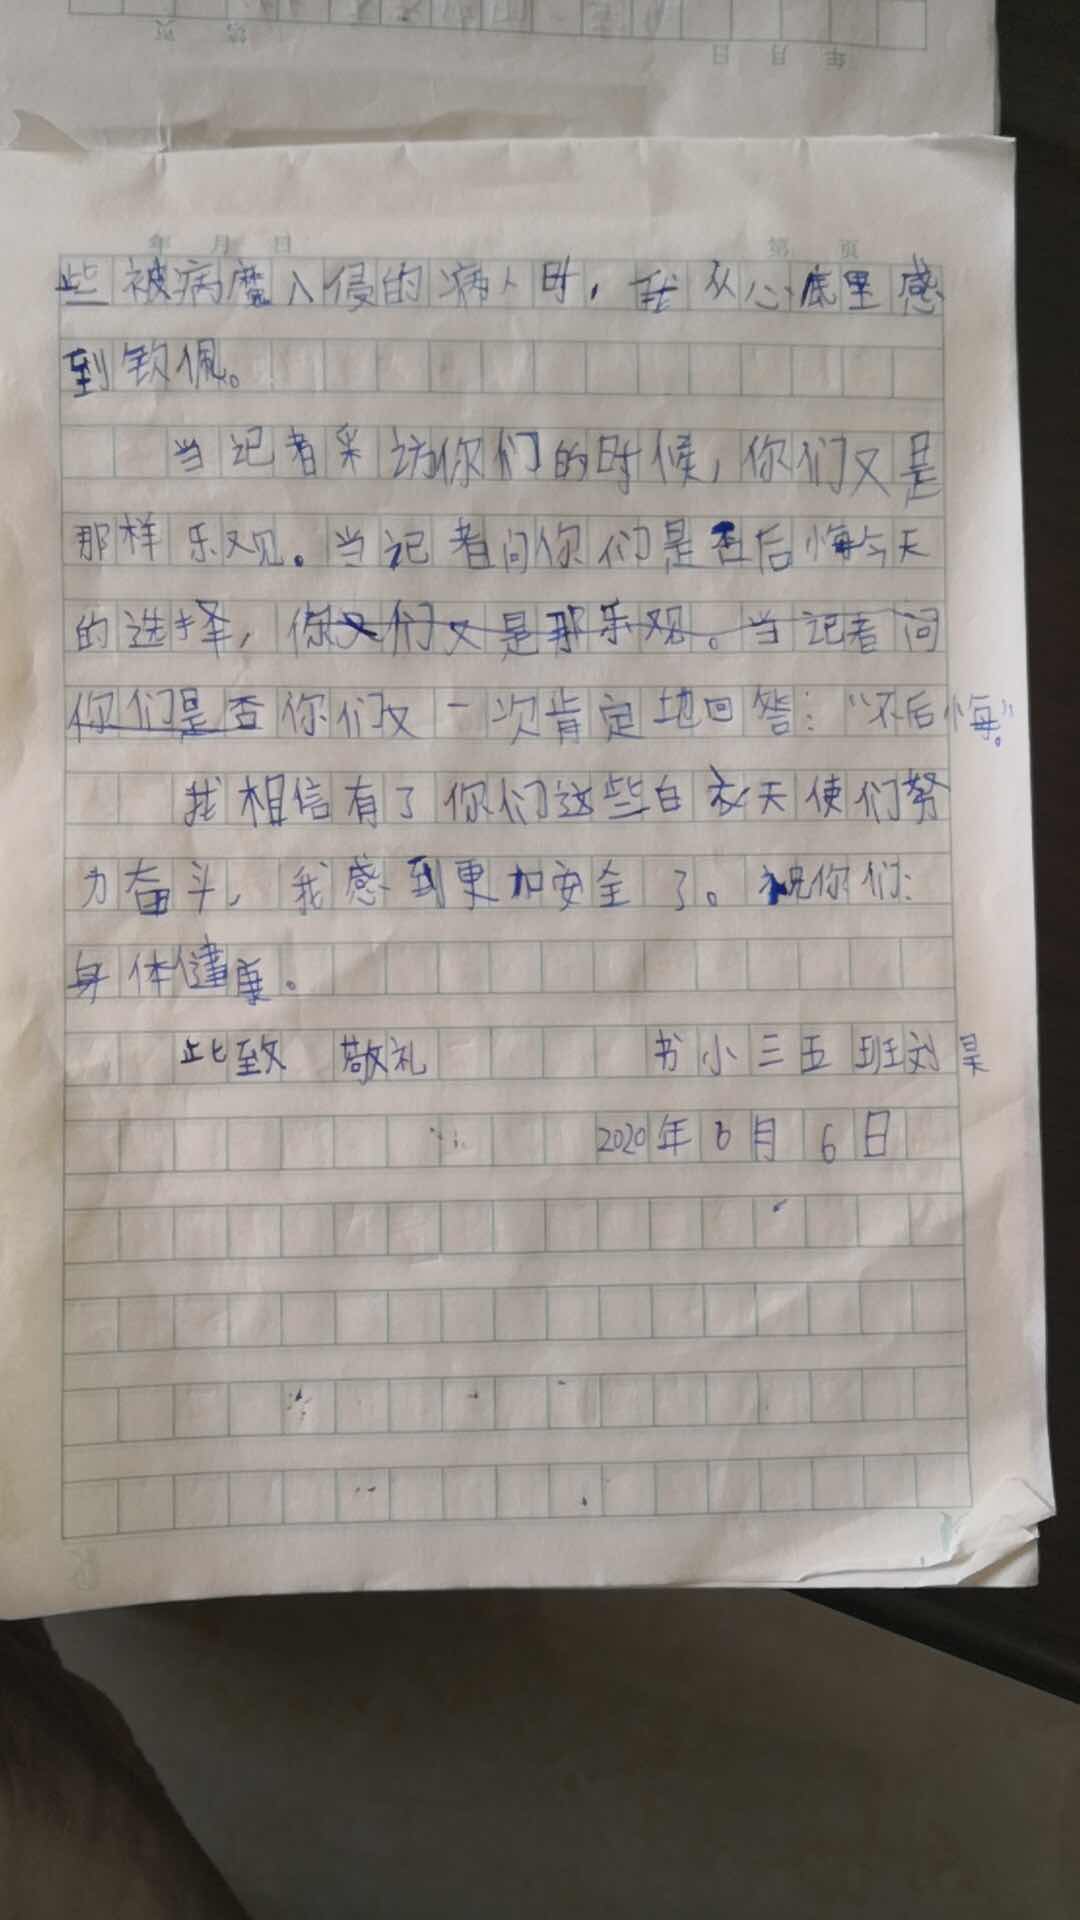 年 月 日 第 页
些被病魔入侵的病人时，我从心底里感
到钦佩。
当记者采访你们的时候，你们又是
那样乐观。当记者问你们是否后悔今天
的选择，你又们又是那乐观。当记者问
你们是否你们又一次肯定地回答：“不后悔。”
我相信有了你们这些白衣天使们努
力奋斗，我感到更加安全了。祝你们：
身体健康。
此致 敬礼 书小三五班刘昊
2020年6月6日